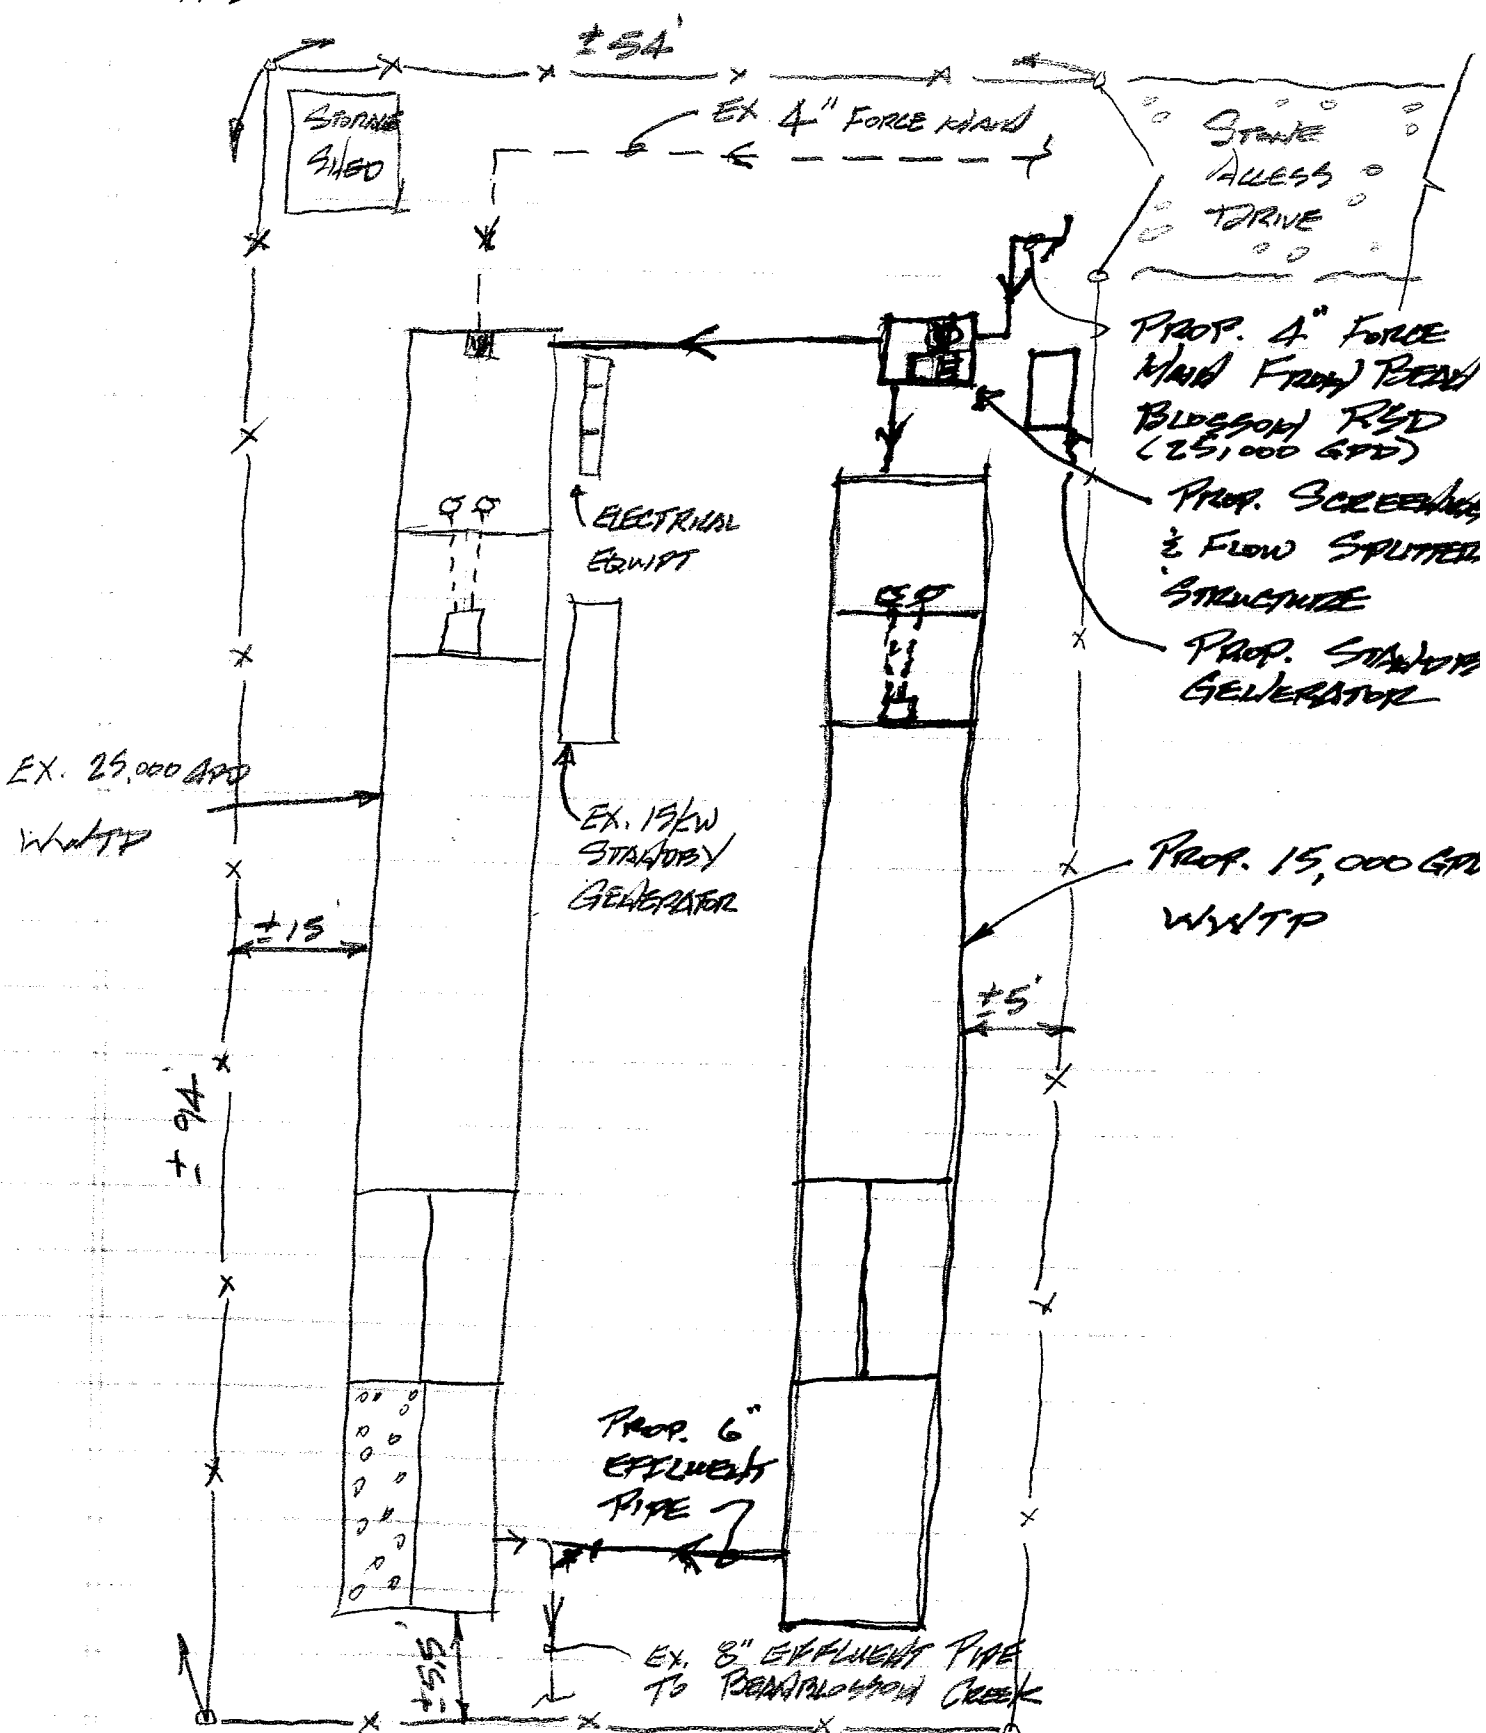 ±54'
STORAGE
SHED
EX 4" FORCE MAIN
STONE
ACCESS
DRIVE
PROP. 4" FORCE
MAIN FROM BEAN
BLOSSOM RSD
(25,000 GPD)
PROP. SCREENING
& FLOW SPLITTER
STRUCTURE
PROP. STANDBY
GENERATOR
ELECTRICAL
EQUIPT
EX. 25,000 GPD
WWTP
EX. 15KW
STANDBY
GENERATOR
PROP. 15,000 GPD
WWTP
±15'
±5'
±94'
PROP. 6"
EFFLUENT
PIPE
±5.5'
EX. 8" EFFLUENT PIPE
TO BEANBLOSSOM CREEK